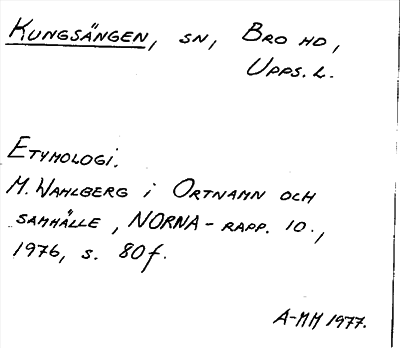 KUNGSÄNGEN, SN, BRO HD,
UPPS. L.
ETYMOLOGI.
M. WAHLBERG i ORTNAMN OCH
SAMHÄLLE, NORNA-RAPP. 10.,
1976, s. 80f.
A-MM 1977.